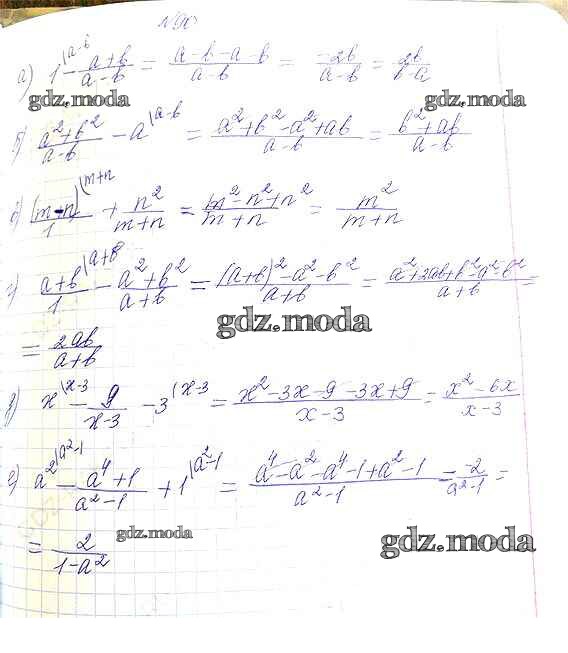 № 90
а) 1^{\a-b} - \frac{a+b}{a-b} = \frac{a-b-a-b}{a-b} = \frac{-2b}{a-b} = \frac{2b}{b-a}
gdz.moda gdz.moda
б) \frac{a²+b²}{a-b} - a^{\a-b} = \frac{a²+b²-a²+ab}{a-b} = \frac{b²+ab}{a-b}
в) \frac{(m-n)}{1}^{\m+n} + \frac{n²}{m+n} = \frac{m²-n²+n²}{m+n} = \frac{m²}{m+n}
г) \frac{a+b}{1}^{\a+b} - \frac{a²+b²}{a+b} = \frac{(a+b)²-a²-b²}{a+b} = \frac{a²+2ab+b²-a²-b²}{a+b} =
gdz.moda
= \frac{2ab}{a+b}
д) x^{\x-3} - \frac{9}{x-3} - 3^{\x-3} = \frac{x²-3x-9-3x+9}{x-3} = \frac{x²-6x}{x-3}
е) a²^{\a²-1} - \frac{a⁴+1}{a²-1} + 1^{\a²-1} = \frac{a⁴-a²-a⁴-1+a²-1}{a²-1} = \frac{-2}{a²-1} =
gdz.moda gdz.moda
= \frac{2}{1-a²}